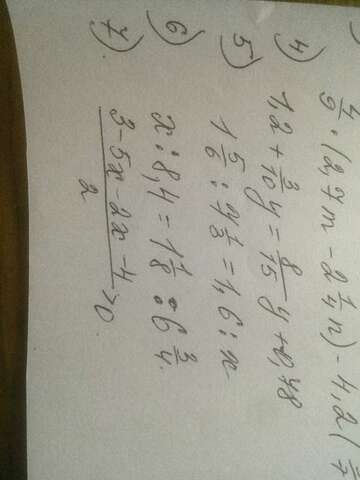 ) 4/9 · (2,7m - 2 1/4 n) - 4,2(
4) 1,2 + 3/10 y = 8/15 y + 0,78
5) 1 5/6 : 4 1/3 = 1,6 : x
6) x : 8,4 = 1 1/8 : 6 3/4
7) 3-5x-2x-4/2 >0